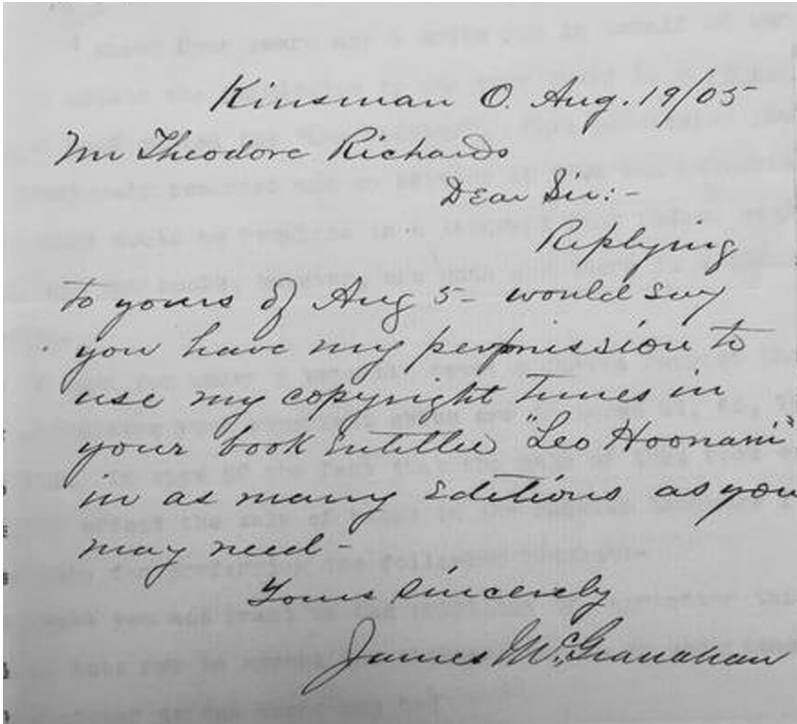 Kinsman O. Aug. 19/05
Mr Theodore Richards
Dear Sir:-
Replying
to yours of Aug 5- would say
you have my permission to
use my copyright tunes in
your book Entitled "Leo Hoonani"
in as many Editions as you
may need-
Yours Sincerely
James McGranahan